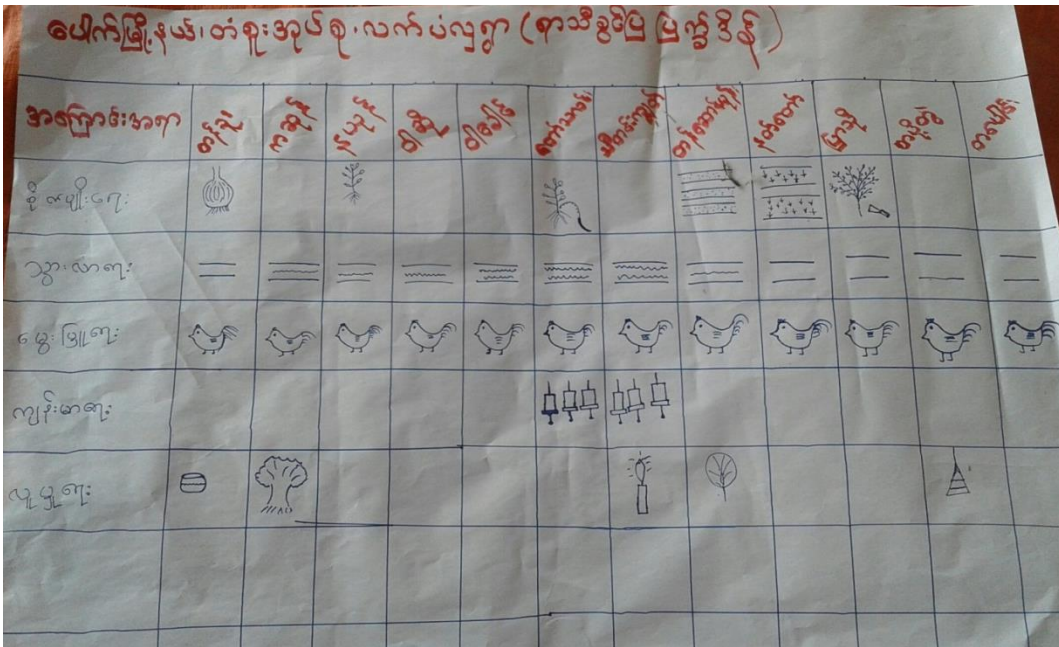 ပေါက်မြို့နယ်၊တံစူးအုပ်စု၊လက်ပံလှရွာ (ရာသီခွင်ပြ ပြက္ခဒိန်)
အကြောင်းအရာ တန်ခူး ကဆုန် နယုန် ဝါဆို ဝါခေါင် တော်သလင်း သီတင်းကျွတ် တန်ဆောင်မုန်း နတ်တော် ပြာသို တပို့တွဲ တပေါင်း
စိုက်ပျိုးရေး
သွားလာရေး
မွေးမြူရေး
ကျန်းမာရေး
လူမှုရေး